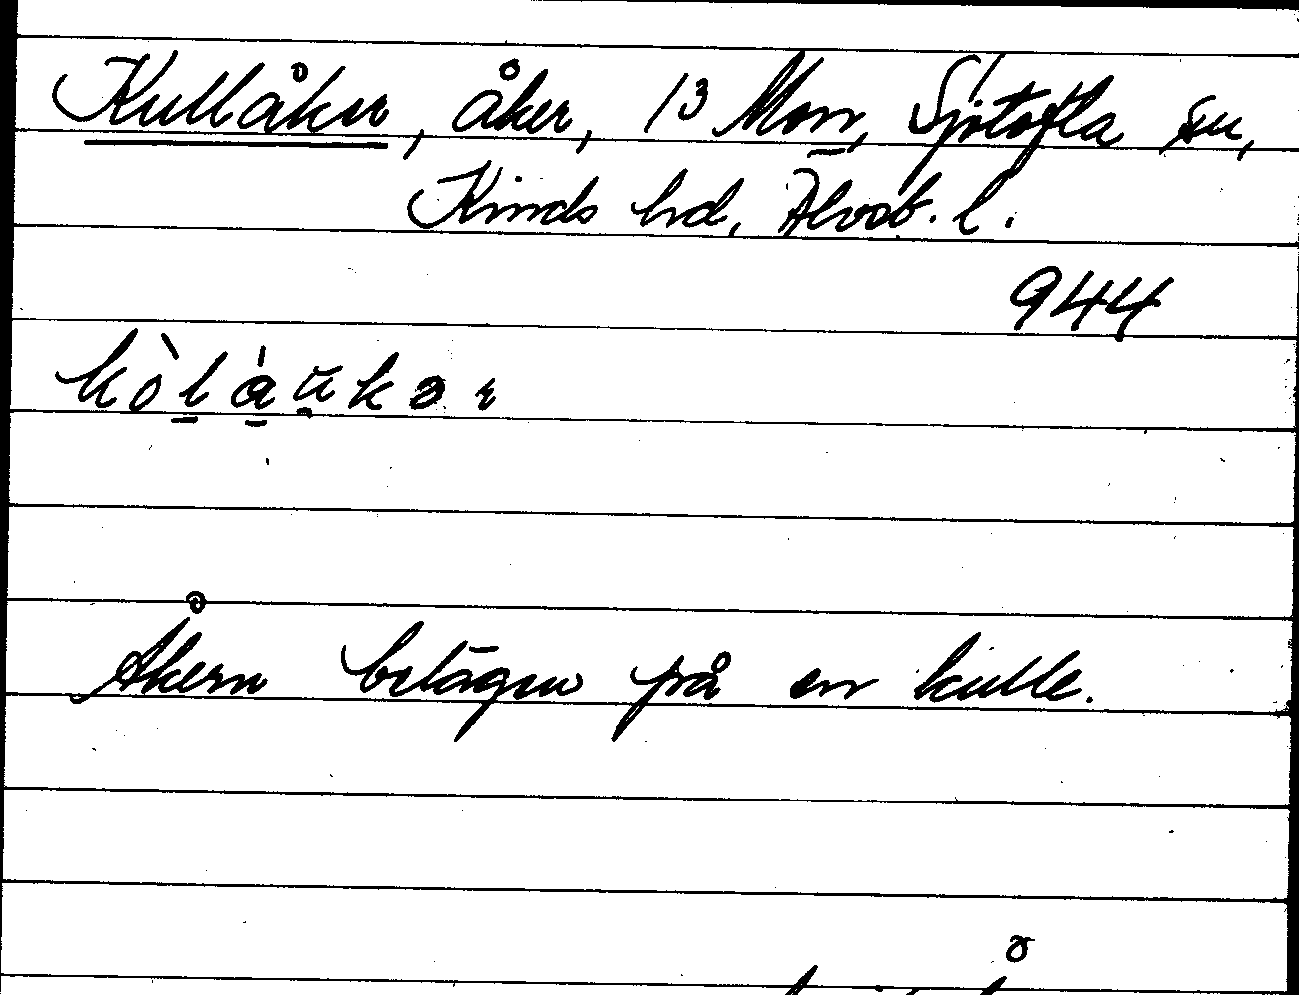 Kullåker, åker, 13 Mon, Sjötofla sn,
Kinds hd, Älvsb. l.
944
kòlàukər
Åkern belägen på en kulle.